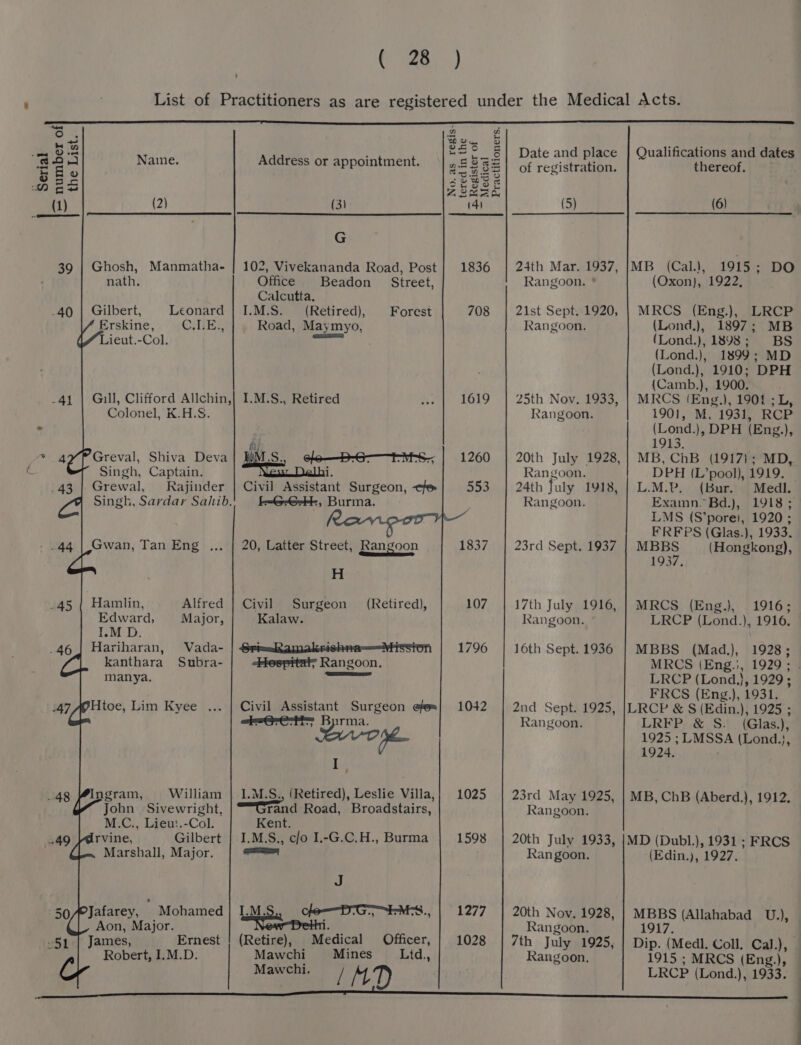 ( 28 )
List of Practitioners as are registered under the Medical Acts.
Serial number of the List.
Name.
Address or appointment.
No. as registered in the Register of Medical Practitioners.
Date and place of registration.
Qualifications and dates thereof.
(1) (2) (3) (4) (5) (6)
G
39 Ghosh, Manmatha- 102, Vivekananda Road, Post 1836 24th Mar. 1937, MB (Cal.), 1915; DO
nath. Office Beadon Street, Rangoon. (Oxon), 1922.
Calcutta.
40 Gilbert, Leonard I.M.S. (Retired), Forest 708 21st Sept. 1920, MRCS (Eng.), LRCP
Erskine, C.I.E., Road, Maymyo, Rangoon. (Lond.), 1897; MB
Lieut.-Col. (Lond.), 1898; BS
(Lond.), 1899; MD
(Lond.), 1910; DPH
(Camb.), 1900.
41 Gill, Clifford Allchin, I.M.S., Retired ... 1619 25th Nov. 1933, MRCS (Eng.), 1901; L,
Colonel, K.H.S. Rangoon. 1901, M. 1931, RCP
(Lond.), DPH (Eng.),
1913.
42 Greval, Shiva Deva I.M.S., c/o D.G. I.M.S., 1260 20th July 1928, MB, ChB (1917); MD,
Singh, Captain. New Delhi. Rangoon. DPH (L'pool), 1919.
43 Grewal, Rajinder Civil Assistant Surgeon, c/o 553 24th July 1918, L.M.P. (Bur. Medl.
Singh, Sardar Sahib. I-G.C.H., Burma. Rangoon. Examn. Bd.), 1918;
Rangoon LMS (S'pore), 1920;
FRFPS (Glas.), 1933.
44 Gwan, Tan Eng ... 20, Latter Street, Rangoon 1837 23rd Sept. 1937 MBBS (Hongkong),
1937.
H
45 Hamlin, Alfred Civil Surgeon (Retired), 107 17th July 1916, MRCS (Eng.), 1916;
Edward, Major, Kalaw. Rangoon. LRCP (Lond.), 1916.
I.M D.
46 Hariharan, Vada- Sri Ramakrishna Mission 1796 16th Sept. 1936 MBBS (Mad.), 1928;
kanthara Subra- Hospital, Rangoon. MRCS (Eng.), 1929;
manya. LRCP (Lond.), 1929;
FRCS (Eng.), 1931.
47 Htoe, Lim Kyee ... Civil Assistant Surgeon c/o 1042 2nd Sept. 1925, LRCP & S (Edin.), 1925;
I-G.C.H., Burma. Rangoon. LRFP & S. (Glas.),
1925; LMSSA (Lond.),
1924.
I
48 Ingram, William I.M.S., (Retired), Leslie Villa, 1025 23rd May 1925, MB, ChB (Aberd.), 1912.
John Sivewright, Grand Road, Broadstairs, Rangoon.
M.C., Lieut.-Col. Kent.
49 Irvine, Gilbert I.M.S., c/o I.-G.C.H., Burma 1598 20th July 1933, MD (Dubl.), 1931; FRCS
Marshall, Major. Rangoon. (Edin.), 1927.
J
50 Jafarey, Mohamed I.M.S., c/o D.G., I.M.S., 1277 20th Nov. 1928, MBBS (Allahabad U.),
Aon, Major. New Delhi. Rangoon. 1917.
51 James, Ernest (Retire), Medical Officer, 1028 7th July 1925, Dip. (Medl. Coll. Cal.),
Robert, I.M.D. Mawchi Mines Ltd., Rangoon. 1915; MRCS (Eng.),
Mawchi. IMD LRCP (Lond.), 1933.